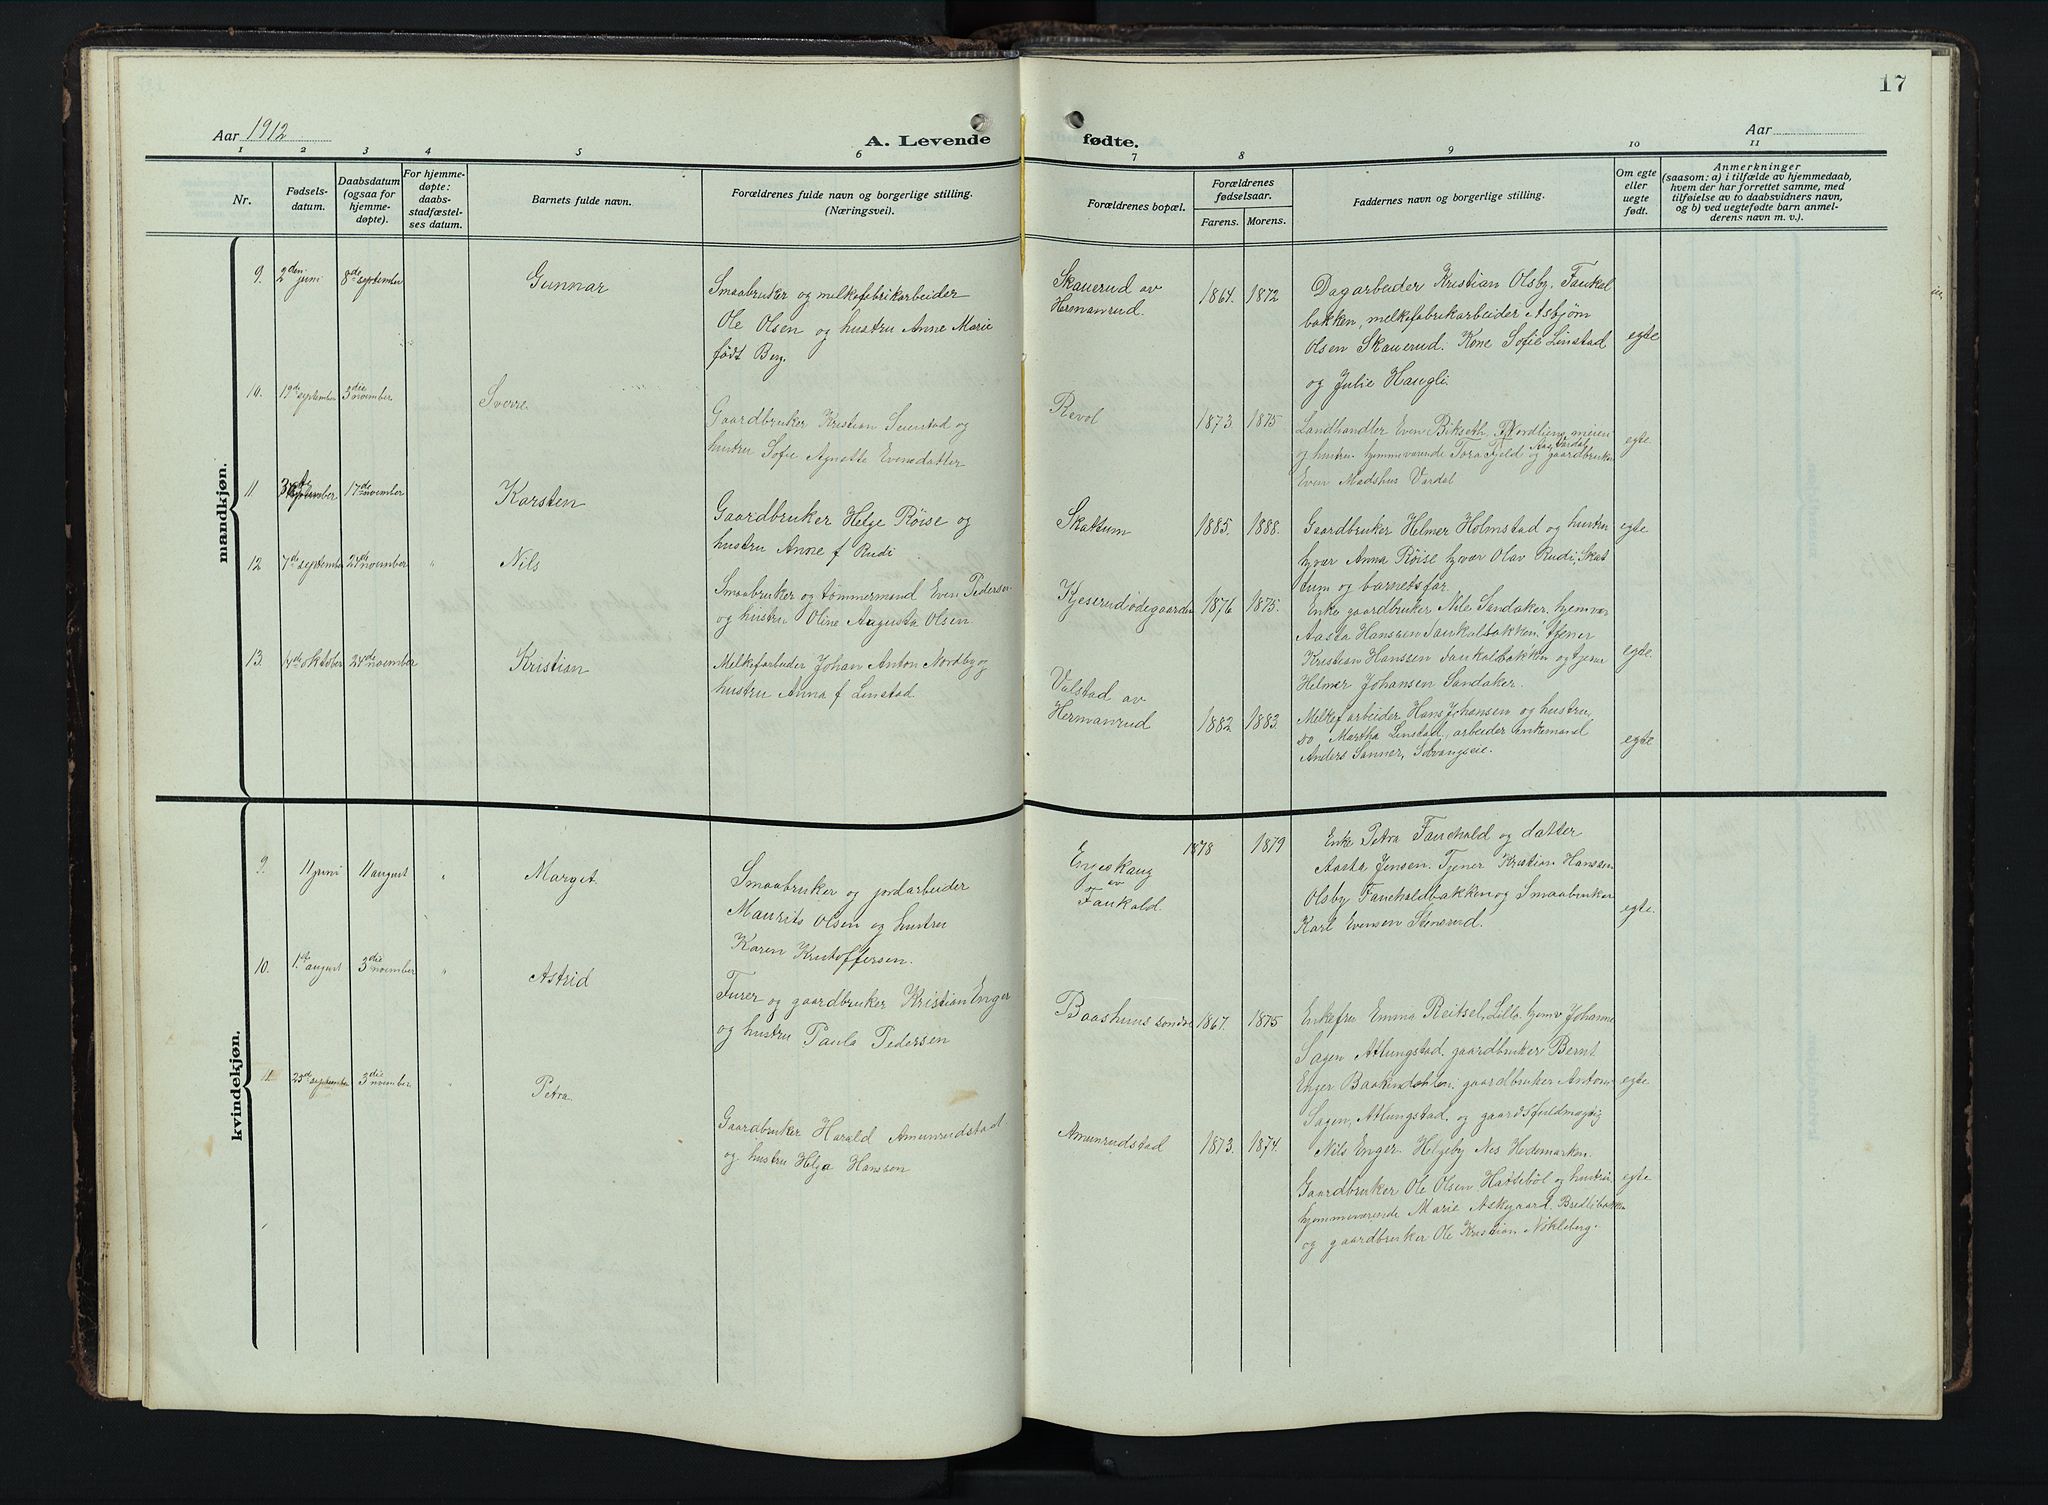 17
Aar 1912
A. Levende
fødte.
Aar
1 2 3 4 5 6 7 8 9 10 11
Nr.
Fødsels-
datum.
Daabsdatum
(ogsaa for
hjemme-
døpte).
For hjemme-
døpte:
daabs-
stadfæstel-
ses datum.
Barnets fulde navn.
Forældrenes fulde navn og borgerlige stilling.
(Næringsvei).
Forældrenes bopæl.
Forældrenes
fødselsaar.
Farens. Morens.
Faddernes navn og borgerlige stilling.
Om egte
eller
uegte
født.
Anmerkninger
(saasom: a) i tilfælde av hjemmedaab,
hvem der har forrettet samme, med
tilføielse av to daabsvidners navn,
og b) ved uegtefødte barn anmel-
derens navn m. v.).
mandkjøn.
9. 2den juni 8de september Gunnar
Smaabruker og melkefabrikarbeider
Ole Olsen og hustru Anne Marie
født Berg.
Skauerud av
Hermanrud.
1864. 1872
Dagarbeider Kristian Olsby, Faukal
bakken, melkefabrikarbeider Asbjørn
Olsen Skauerud. Kone Sofie Linstad
og Julie Haugli.
egte
10. 19de september 3die november Sverre.
Gaardbruker Kristian Seierstad og
hustru Sofie Agnette Evensdatter
Revol
1873. 1875
Landhandler Even Bikseth, Nordliens meieri
og hustru hjemmeværende Tora Fjeld og gaardbruker
Even Madshus Vardal
egte
11. september 17de november Karsten
Gaardbruker Helge Røise og
hustru Anne f Rudi
Skattum
1885. 1888.
Gaardbruker Helmer Holmstad og hustru
hjvær Anna Røise hjvær Olav Rudi, Skat
tum og barnets far.
egte
12 7de september 24de november " Nils
Smaabruker og tømmermand Even Pedersen
og hustru Oline Augusta Olsen.
Kjeserudødegaarden
1876 1875.
Enke gaardbruker Nils Sandaker. hjemvær
Aasta Hanssen Faukalbakken, tjener
Kristian Hanssen Faukalbakken og tjener
Helmer Johansen Sandaker.
egte.
13. 14de oktober 24de november Kristian
Melkefarbeider Johan Anton Nordby og
hustru Anna f Linstad.
Valstad av
Hermanrud
1882 1883.
Melkefarbeider Hans Johansen og hustru
do Martha Linstad, arbeider enkemand
Anders Sanner, Solvangseie.
egte
kvindekjøn.
9. 11 juni 11 august " Margit.
Smaabruker og jordarbeider
Maurits Olsen og hustru
Karen Kristoffersen.
Engeskaug
av
Faukald.
1878 1879
Enke Petra Fauchald og datter
Aasta Jensen. Tjener Kristian Hanssen
Olsby Faucholdbakken og Smaabruker
Karl Evensen Stensrud.
egte.
10. 1ste august 3die november " Astrid
Furer og gaardbruker Kristian Enger
og hustru Paula Pedersen
Baashuus søndre
1867. 1875
Enkefru Emma Reitsel, Lillo, hjemv Johanne
Sagen Atlungstad. gaardbruker Bernt
Enger Baakindahlen. gaardbruker Anton
Sagen, Atlungstad og gaardsfuldmægtig
Nils Enger Helgeby Nes Hedemarken.
egte
11. 25de september 3die november " Petra
Gaardbruker Harald Amunrudstad
og hustru Helga Hanssen
Amunrudstad
1873. 1874.
Gaardbruker Ole Olsen Hattebøl og hustru,
hjemmeværende Marie Askegaard, Bredlibakken
og gaardbruker Ole Kristian Nøkleberg.
egte